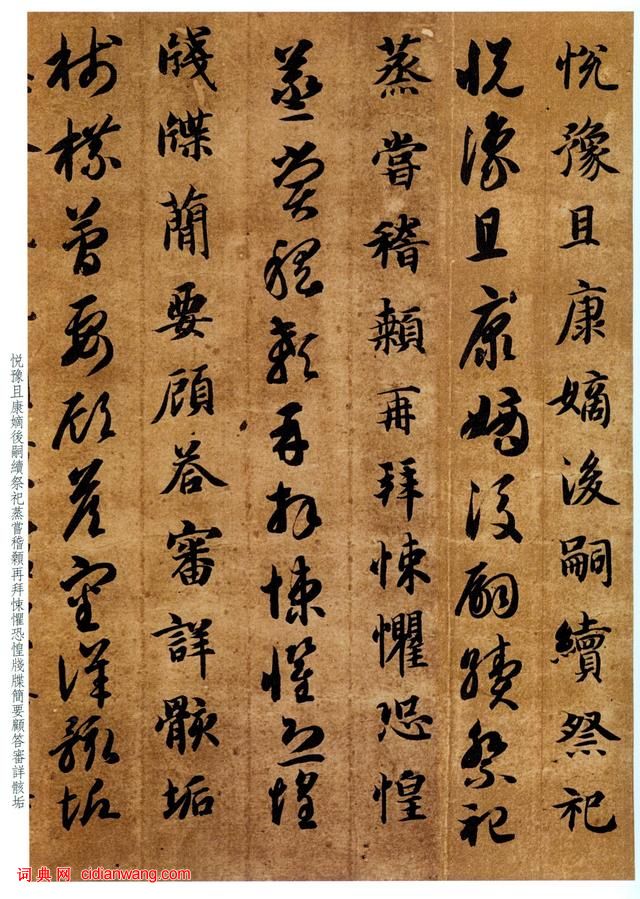 悅豫且康嫡後嗣續祭祀
悅豫且康嫡後嗣續祭祀
蒸嘗稽顙再拜悚懼恐惶
蒸嘗稽顙再拜悚懼恐惶
牋牒簡要顧荅審詳骸垢
牋牒簡要顧荅審詳骸垢
悅豫且康嫡後嗣續祭祀蒸嘗稽顙再拜悚懼恐惶牋牒簡要顧答審詳骸垢
词典网 cidianwang.com